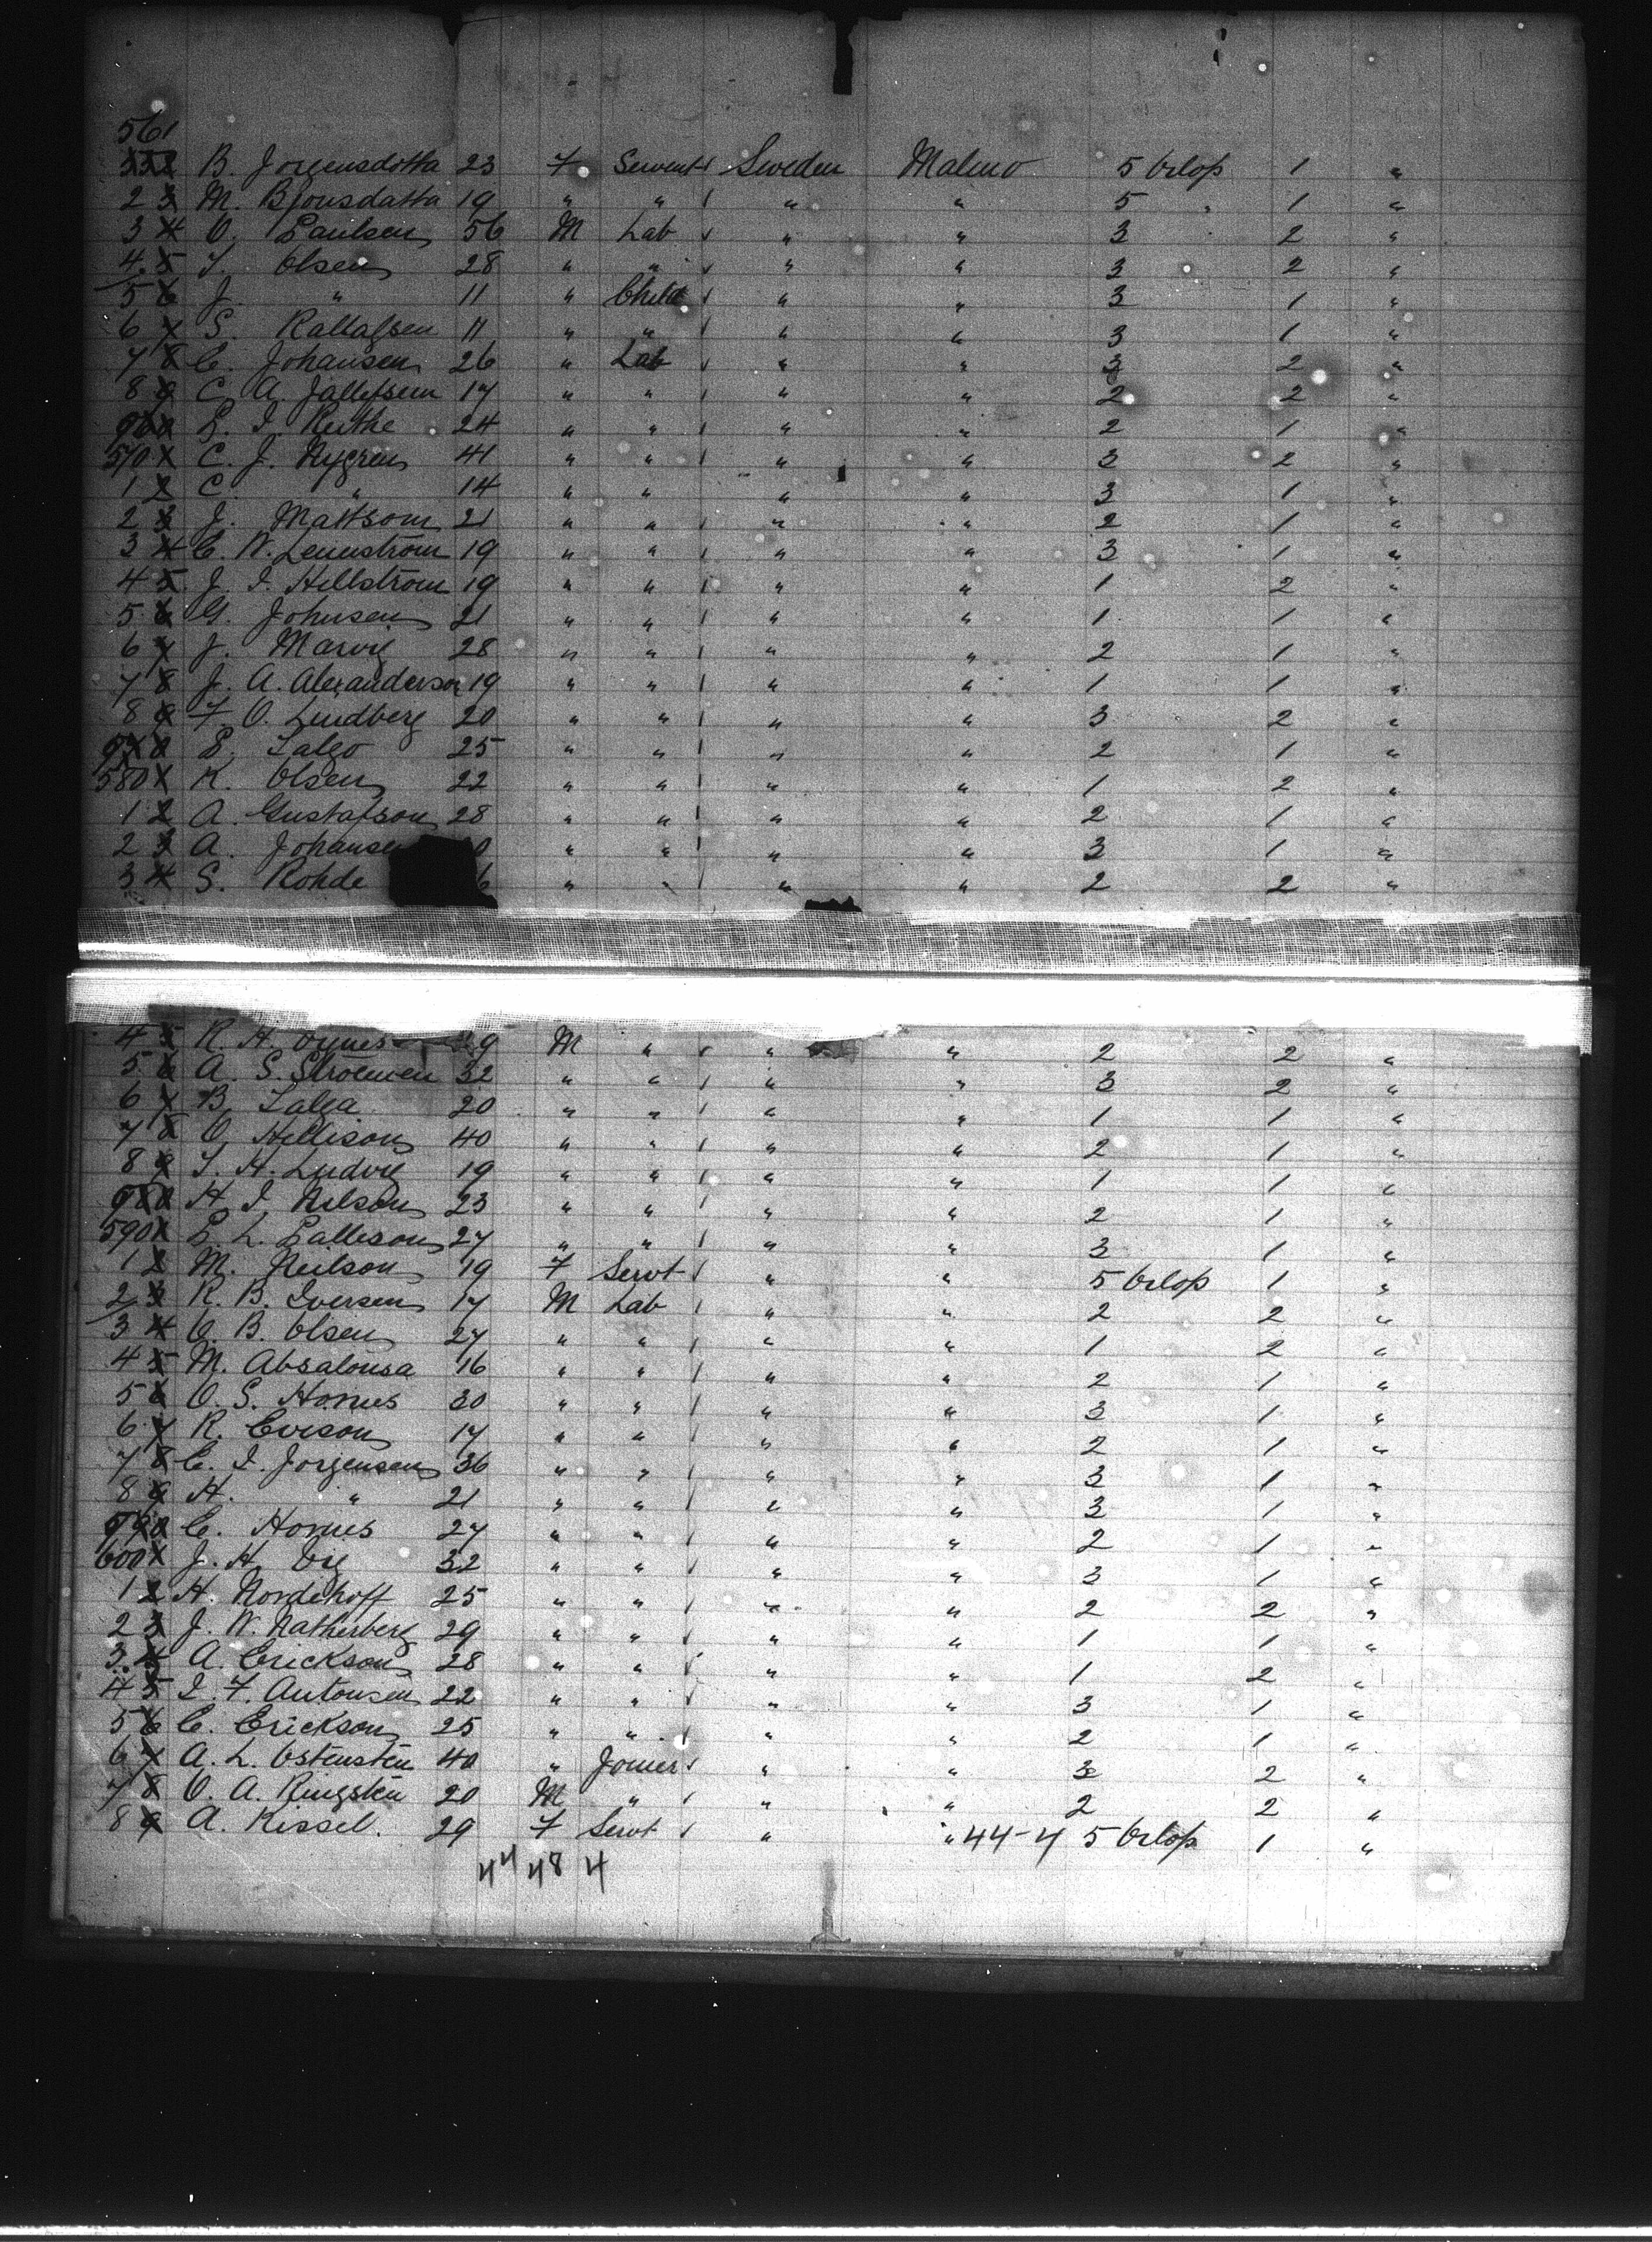 561
B. Jorgensdotta 23 F Servent Sweden Malmo 5 Orlop 1 "
2 3 M. Bjonsdatta 19 " " " " 5 1 "
3 4 O. Paulsen 56 M Lab " " 3 2 "
4 5 T. Olsen 28 " " " " 3 2 "
5 6 J. " 11 " Child " " 3 1 "
6 7 S. Rallafsen 11 " " " " 3 1 "
7 8 C. Johansen 26 " Lab " " 3 2 "
8 9 C. A. Jallefsem 17 " " " " 2 2 "
9 P. I. Reithe 24 " " " " 2 1 "
570 C. J. Nygren 41 " " " " 3 2 "
1 2 C. " 14 " " " " 3 1 "
2 3 J. Mattsom 21 " " " " 2 1 "
3 4 C. W. Lennstrom 19 " " " " 3 1 "
4 5 J. I. Hellstrom 19 " " " " 1 2 "
5 6 G. Johnsen 21 " " " " 1 1 "
6 7 J. Marvig 28 " " " " 2 1 "
7 8 J. A. Alexanderson 19 " " " " 1 1 "
8 9 F. O. Lindberg 20 " " " " 3 2 "
9 P. Salgo 25 " " " " 2 1 "
580 K. Olsen 22 " " " " 1 2 "
1 2 A. Gustafson 28 " " " " 2 1 "
2 3 A. Johansen 0 " " " " 3 1 "
3 4 S. Rohde 6 " " " " 2 2 "
4 5 R. H. 9 M " " " 2 2 "
5 6 A. S. Stroemen 32 " " " " 3 2 "
6 7 B. Salga 20 " " " " 1 1 "
7 8 O. Hellison 40 " " " " 2 1 "
8 9 T. H. Ludvig 19 " " " " 1 1 "
9 H. I. Nelson 23 " " " " 2 1 "
590 P. L. Pallison 27 " " " " 3 1 "
1 2 M. Neilson 19 F Servt " " 5 Orlop 1 "
2 3 R. B. Iversen 17 M Lab " " 2 2 "
3 4 O. B. Olsen 27 " " " " 1 2 "
4 5 M. Absalonsa 16 " " " " 2 1 "
5 6 O. S. Homes 30 " " " " 3 1 "
6 7 R. Evison 17 " " " " 2 1 "
7 8 C. I. Jorgensen 36 " " " " 3 1 "
8 9 H. " 21 " " " " 3 1 "
9 C. Homes 27 " " " " 2 1 "
600 J. H. Vig 32 " " " " 3 1 "
1 2 H. Nordehoff 25 " " " " 2 2 "
2 3 J. W. Natherberg 29 " " " " 1 1 "
3 4 A. Erickson 28 " " " " 1 2 "
4 5 I. F. Antonsen 22 " " " " 3 1 "
5 6 C. Erickson 25 " " " " 2 1 "
6 7 A. L. Ostensten 40 " Joiner " " 3 2 "
7 8 O. A. Ringsten 20 M " " " 2 2 "
8 9 A. Kissel. 29 F Servt " " 44-4 5 Orlop 1 "
44 48 4